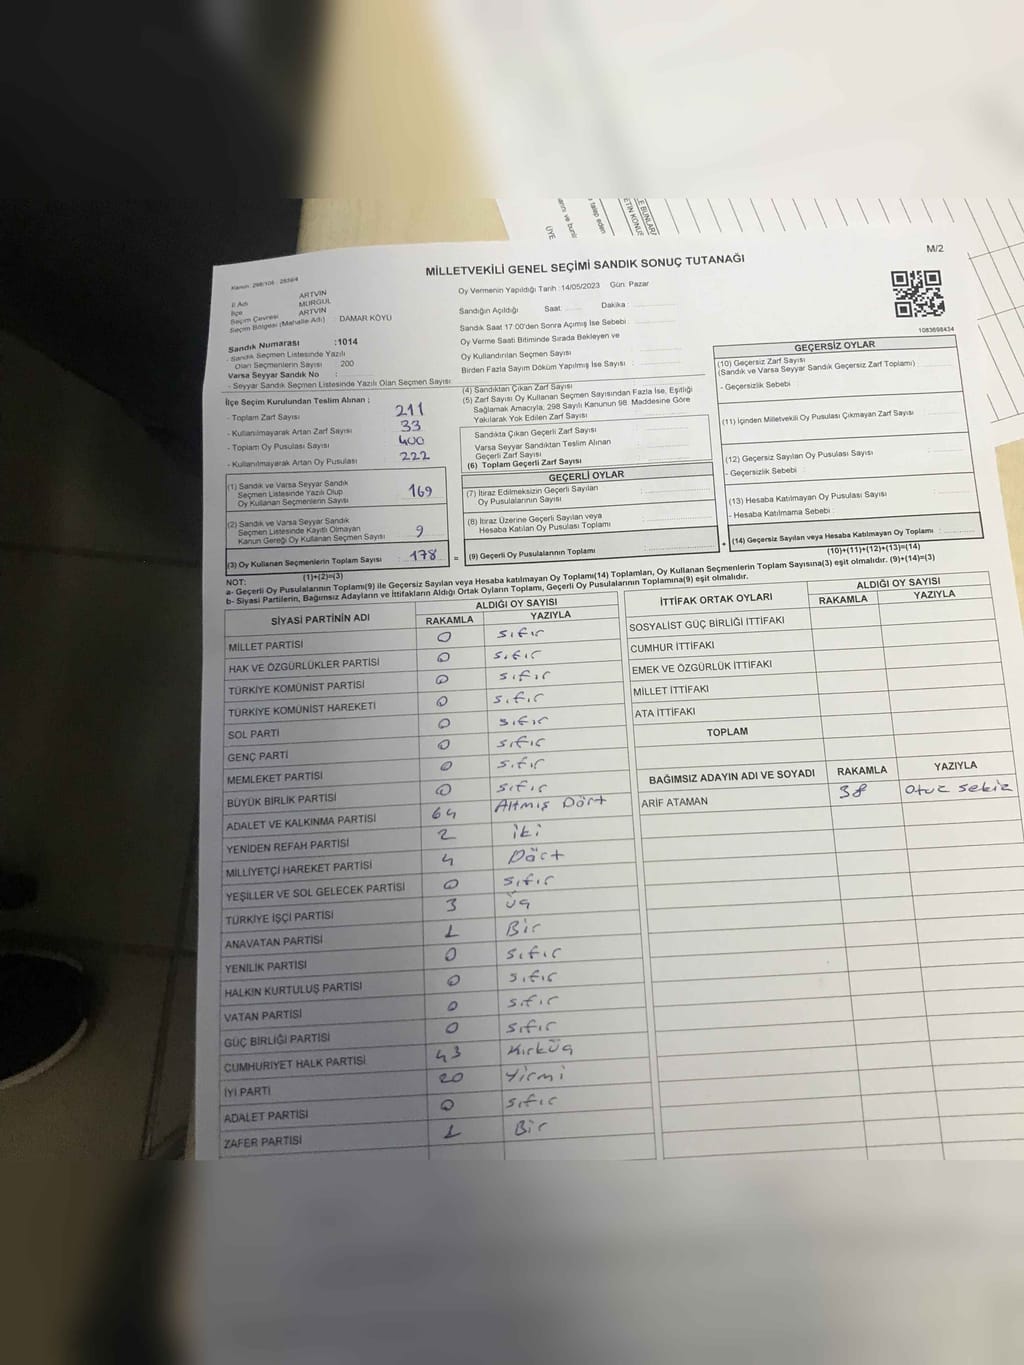 MİLLETVEKİLİ GENEL SEÇİMİ SANDIK SONUÇ TUTANAĞI
M/2
İl Adı ARTVİN
İlçe MURGUL
Seçim Çevresi ARTVİN
Seçim Bölgesi (Mahalle Adı) : DAMAR KÖYÜ
Sandık Numarası :1014
- Sandık Seçmen Listesinde Yazılı
Olan Seçmenlerin Sayısı : 200
Varsa Seyyar Sandık No :
- Seyyar Sandık Seçmen Listesinde Yazılı Olan Seçmen Sayısı
Oy Vermenin Yapıldığı Tarih :14/05/2023 Gün: Pazar
Sandığın Açıldığı Saat: Dakika :
Sandık Saat 17.00'den Sonra Açımış İse Sebebi :
Oy Verme Saati Bitiminde Sırada Bekleyen ve
Oy Kullandırılan Seçmen Sayısı :
Birden Fazla Sayım Döküm Yapılmış İse Sayısı :
1083698434
İlçe Seçim Kurulundan Teslim Alınan ;
- Toplam Zarf Sayısı : 211
- Kullanılmayarak Artan Zarf Sayısı : 33
- Toplam Oy Pusulası Sayısı : 400
- Kullanılmayarak Artan Oy Pusulası : 222
(1) Sandık ve Varsa Seyyar Sandık
Seçmen Listesinde Yazılı Olup
Oy Kullanan Seçmenlerin Sayısı : 169
(2) Sandık ve Varsa Seyyar Sandık
Seçmen Listesinde Kayıtlı Olmayan
Kanun Gereği Oy Kullanan Seçmen Sayısı : 9
(3) Oy Kullanan Seçmenlerin Toplam Sayısı : 178 =
(1)+(2)=(3)
(4) Sandıktan Çıkan Zarf Sayısı :
(5) Zarf Sayısı Oy Kullanan Seçmen Sayısından Fazla İse, Eşitliği
Sağlamak Amacıyla; 298 Sayılı Kanunun 98. Maddesine Göre
Yakılarak Yok Edilen Zarf Sayısı :
Sandıkta Çıkan Geçerli Zarf Sayısı :
Varsa Seyyar Sandıktan Teslim Alınan
Geçerli Zarf Sayısı :
(6) Toplam Geçerli Zarf Sayısı :
GEÇERLİ OYLAR
(7) İtiraz Edilmeksizin Geçerli Sayılan
Oy Pusulalarının Sayısı :
(8) İtiraz Üzerine Geçerli Sayılan veya
Hesaba Katılan Oy Pusulası Toplamı :
(9) Geçerli Oy Pusulalarının Toplamı : +
GEÇERSİZ OYLAR
(10) Geçersiz Zarf Sayısı
(Sandık ve Varsa Seyyar Sandık Geçersiz Zarf Toplamı) :
- Geçersizlik Sebebi :
(11) İçinden Milletvekili Oy Pusulası Çıkmayan Zarf Sayısı :
(12) Geçersiz Sayılan Oy Pusulası Sayısı :
- Geçersizlik Sebebi :
(13) Hesaba Katılmayan Oy Pusulası Sayısı :
- Hesaba Katılmama Sebebi :
(14) Geçersiz Sayılan veya Hesaba Katılmayan Oy Toplamı :
(10)+(11)+(12)+(13)=(14)
NOT:
a- Geçerli Oy Pusulalarının Toplamı(9) ile Geçersiz Sayılan veya Hesaba katılmayan Oy Toplamı(14) Toplamları, Oy Kullanan Seçmenlerin Toplam Sayısına(3) eşit olmalıdır. (9)+(14)=(3)
b- Siyasi Partilerin, Bağımsız Adayların ve İttifakların Aldığı Ortak Oyların Toplamı, Geçerli Oy Pusulalarının Toplamına(9) eşit olmalıdır.
SİYASİ PARTİNİN ADI ALDIĞI OY SAYISI
RAKAMLA YAZIYLA
MİLLET PARTİSİ 0 sıfır
HAK VE ÖZGÜRLÜKLER PARTİSİ 0 sıfır
TÜRKİYE KOMÜNİST PARTİSİ 0 sıfır
TÜRKİYE KOMÜNİST HAREKETİ 0 sıfır
SOL PARTİ 0 sıfır
GENÇ PARTİ 0 sıfır
MEMLEKET PARTİSİ 0 sıfır
BÜYÜK BİRLİK PARTİSİ 0 sıfır
ADALET VE KALKINMA PARTİSİ 64 Altmış Dört
YENİDEN REFAH PARTİSİ 2 iki
MİLLİYETÇİ HAREKET PARTİSİ 4 Dört
YEŞİLLER VE SOL GELECEK PARTİSİ 0 sıfır
TÜRKİYE İŞÇİ PARTİSİ 3 üç
ANAVATAN PARTİSİ 1 Bir
YENİLİK PARTİSİ 0 sıfır
HALKIN KURTULUŞ PARTİSİ 0 sıfır
VATAN PARTİSİ 0 sıfır
GÜÇ BİRLİĞİ PARTİSİ 0 sıfır
CUMHURİYET HALK PARTİSİ 43 Kırküç
İYİ PARTİ 20 Yirmi
ADALET PARTİSİ 0 sıfır
ZAFER PARTİSİ 1 Bir
İTTİFAK ORTAK OYLARI ALDIĞI OY SAYISI
RAKAMLA YAZIYLA
SOSYALİST GÜÇ BİRLİĞİ İTTİFAKI
CUMHUR İTTİFAKI
EMEK VE ÖZGÜRLÜK İTTİFAKI
MİLLET İTTİFAKI
ATA İTTİFAKI
TOPLAM
BAĞIMSIZ ADAYIN ADI VE SOYADI RAKAMLA YAZIYLA
ARİF ATAMAN 38 Otuz sekiz